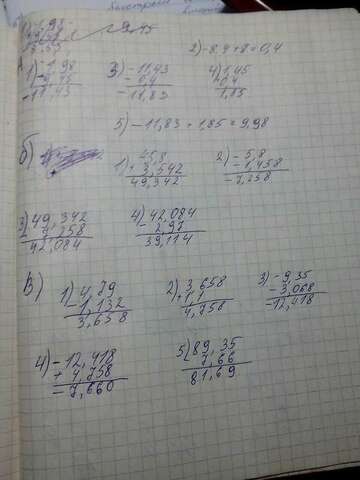 2) -8,4+8=0,4
1) -1,98
-9,45
-11,43
3) -11,43
-0,4
-11,83
4) 1,45
0,4
1,85
5) -11,83 + 1,85 = 9,98
б)
1) 45,8
+ 3,542
49,342
2) - 5,8
- 1,458
- 7,258
3) 49,342
7,258
42,084
4) 42,084
- 2,97
39,114
В)
1) 4,79
- 1,132
3,658
2) 3,658
+ 1,1
4,758
3) -9,35
- 3,068
-12,418
4) -12,418
+ 4,758
- 7,660
5) 89,35
7,66
81,69